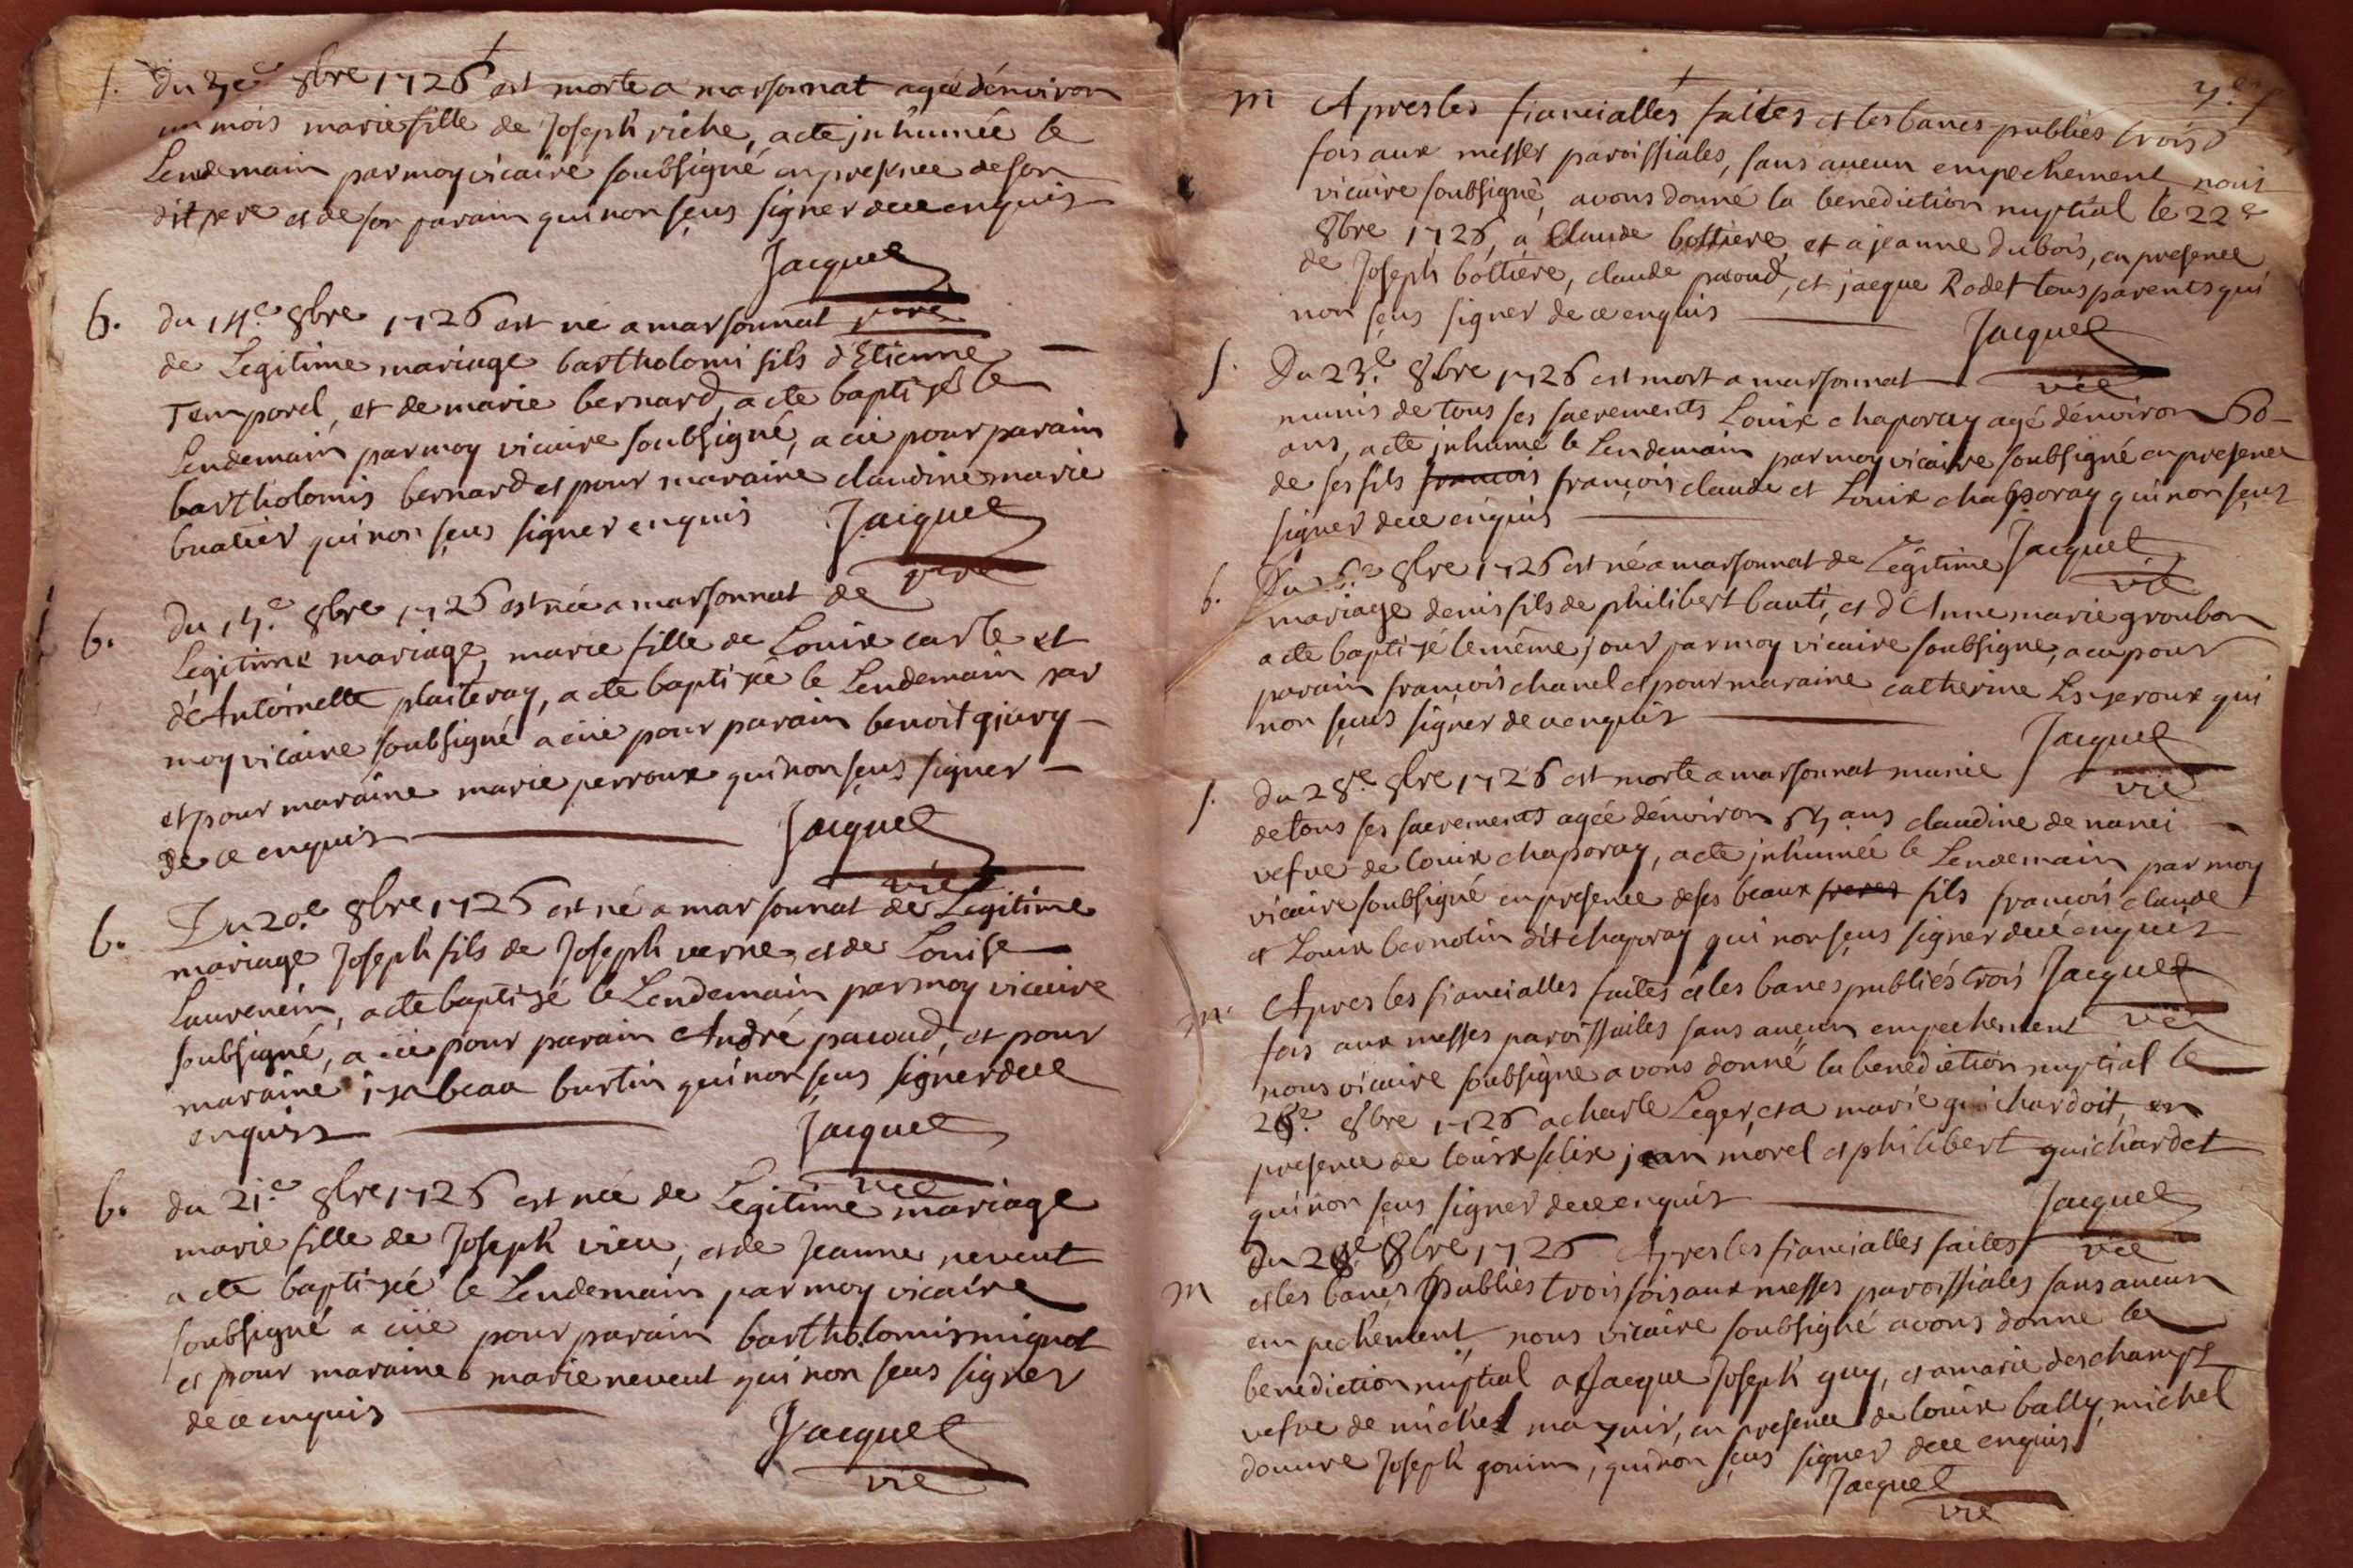 s. Du 3e 8bre 1726 est morte a marsonnat agée dénviron
un mois marie fille de Joseph riche, a éte jnhumée le
Lendemain par moy vicaire soubsigné en presence de son
dit pere et de son parain qui non sçus signer de ce enquis
Jacquet
vire
b. du 14e 8bre 1726 est né a marsonnat
de Legitime mariage bartholomi fils d'Etienne
Temporel, et de marie bernard, a ete baptisé le
Lendemain par moy vicaire soubsigné, a eü pour parain
bartholomis bernard et pour maraine claudine marie
buatier qui non sçus signer enquis
Jacquet
vire
b. du 15e 8bre 1726 est née a marsonnat de
Legitime mariage, marie fille de Louis carle et
d'Antoinette plaiteray, a ete baptisée le Lendemain par
moy vicaire soubsigné a eüe pour parain benoit
et pour maraine marie perroux qui non sçus signer
de ce enquis
Jacquet
vic
b. Du 20e 8bre 1726 est né a marsonnat de Legitime
mariage Joseph fils de Joseph verne, et de Louise
Laurencin, a ete baptisé le Lendemain par moy vicaire
soubsigné, a eü pour parain André pacoud, et pour
maraine isabeau burtin qui non sçus signer de ce
enquis
Jacquet
vic
b. du 21e 8bre 1726 est née de Legitime mariage
marie fille de Joseph vieu, et de Jeanne neveut
a ete baptisée le Lendemain par moy vicaire
soubsigné a eüe pour parain bartholomis mignot
et pour maraine marie neveut qui non sçus signer
de ce enquis
Jacquet
vic
m Apres les fiancialles faites et les bancs publiés trois
fois aux messes paroissiales, sans aucun empechement nous
vicaire soubsigné, avons donné la benediction nuptial le 22e
8bre 1726, a Claude bottiere, et a jeanne dubois, en presence
de Joseph bottiere, claude pacoud, et jacque Rodet tous parents qui
non sçus signer de ce enquis
Jacquet
vic
s. Du 23e 8bre 1726 est mort a marsonnat
munis de tous ses sacrements Louis chaporay agé dénviron 60
ans, a ete jnhumé le Lendemain par moy vicaire soubsigné en presence
de ses fils francois françois claude et Louis chaporay qui non sçus
signer de ce enquis
Jacquet
vic
b. Du 8bre 1726 est né a marsonnat de Legitime
mariage denis fils de philibert bauti, et d'Anne marie groubon
a ete baptisé le même jour par moy vicaire soubsigne, a eu pour
parain françois chanel et pour maraine catherine qui
non sçus signer de ce enquis
Jacquet
vic
s. du 28e 8bre 1726 est morte a marsonnat munie
de tous ses sacrements agée dénviron ans claudine de nanci
vefve de Louis chaporay, a ete jnhumée le Lendemain par moy
vicaire soubsigné en presence de ses beaux freres fils françois claude
et Louis bernolin dit chaporay qui non sçus signer de ce enquis
Jacquet
vic
m. Apres les fiancialles faites et les bancs publiés trois
fois aux messes paroissiales sans aucun empechement
nous vicaire soubsigne avons donné la benediction nuptial le
28e 8bre 1726 a charle Leger, et a marie guichardoit, en
presence de Louis felix jean morel et philibert guichardet
qui non sçus signer de ce enquis
Jacquet
vic
m du 28e 8bre 1726 Apres les fiancialles faites
et les bancs publiés trois fois aux messes paroissiales sans aucun
empechement, nous vicaire soubsigné avons donné la
benediction nuptial a Jacque Joseph guy, et a marie deschamps
vefve de michel mazuir, en presence de Louis bally, michel
donure Joseph gonin, qui non sçus signer de ce enquis
Jacquet
vic